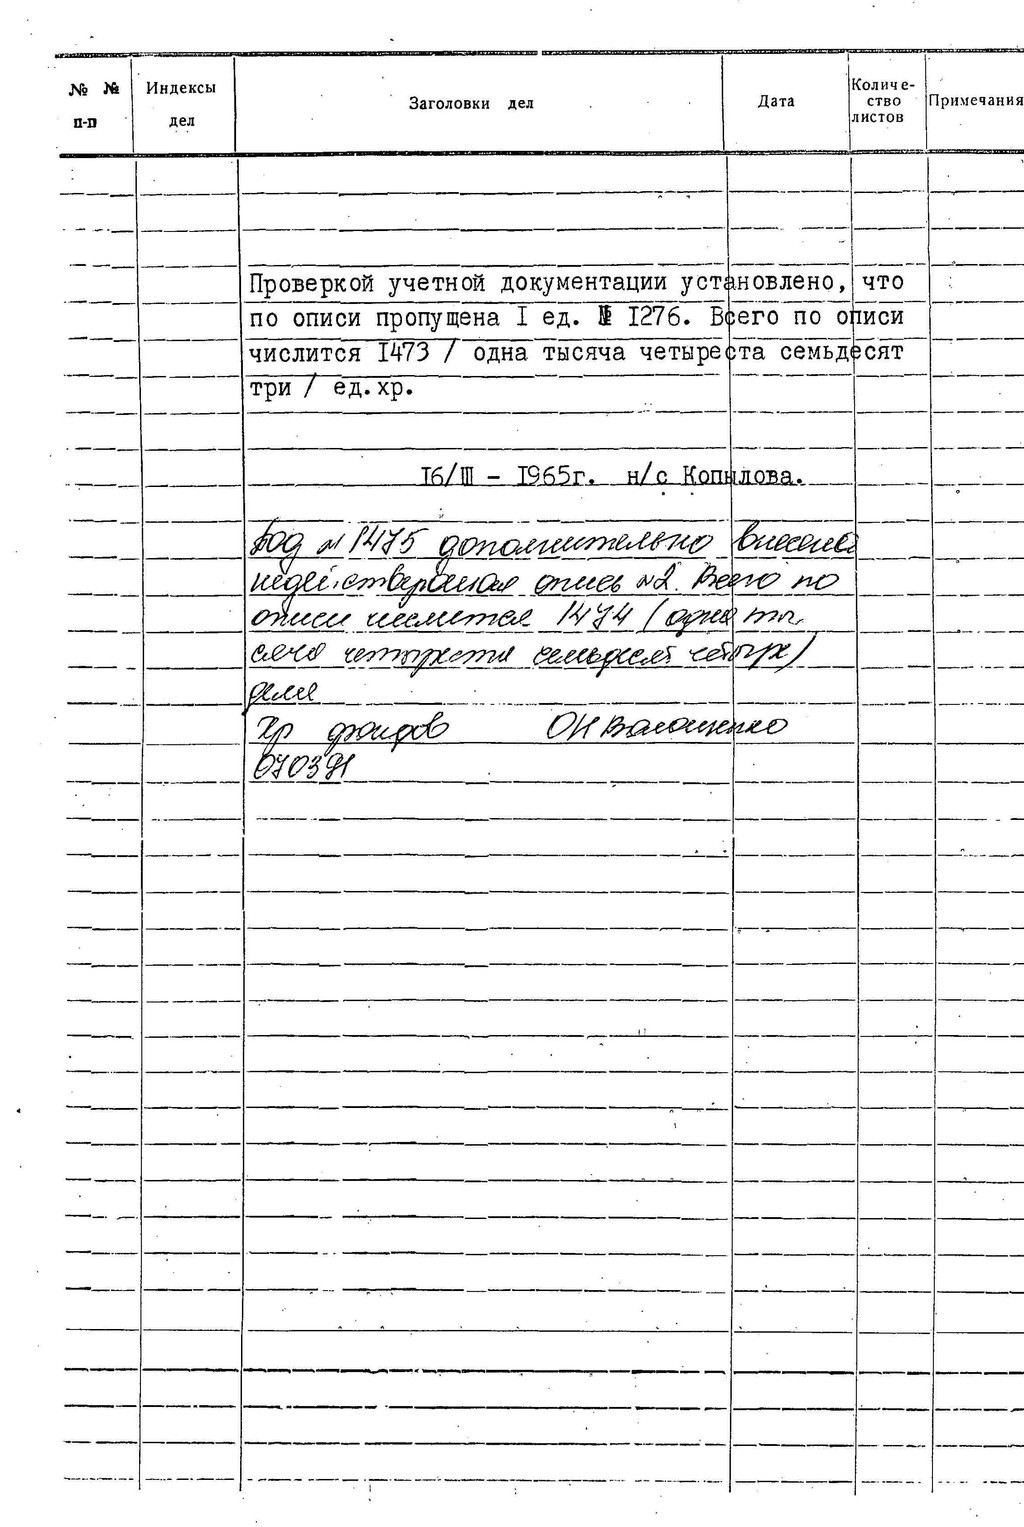 № № п-п
Индексы дел
Заголовки дел
Дата
Количе-ство листов
Примечания
Проверкой учетной документации установлено, что
по описи пропущена I ед. № I276. Всего по описи
числится I473 / одна тысяча четыреста семьдесят
три / ед.хр.
I6/Ш - I965г. н/с Копылова.
Под № 1475 дополнительно внесена
недействующая опись №2. Всего по
описи числится 1474 (одна ты
сяча четыреста семьдесят четыре)
дела
Хр фондов ОН Волошенко
070391